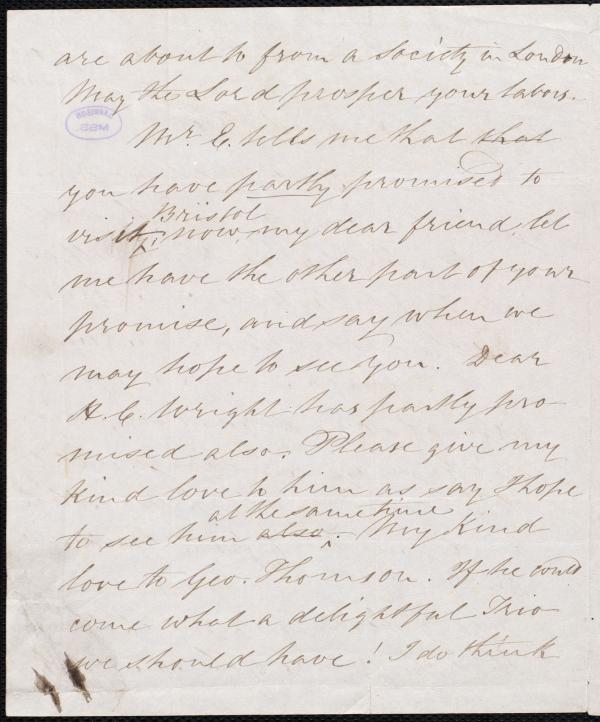 are about to from a Society in London
May the Lord prosper your labors.
Mr. E. tells me that that
you have partly promised to
Bristol
visit, now, my dear friend, let
me have the other part of your
promise, and say when we
may hope to see you. Dear
H. C. Wright has partly pro-
mised also. Please give my
kind love to him as say I hope
at the same time
to see him also. My kind
love to Geo. Thomson. If he could
come what a delightful Trio
we should have! I do think